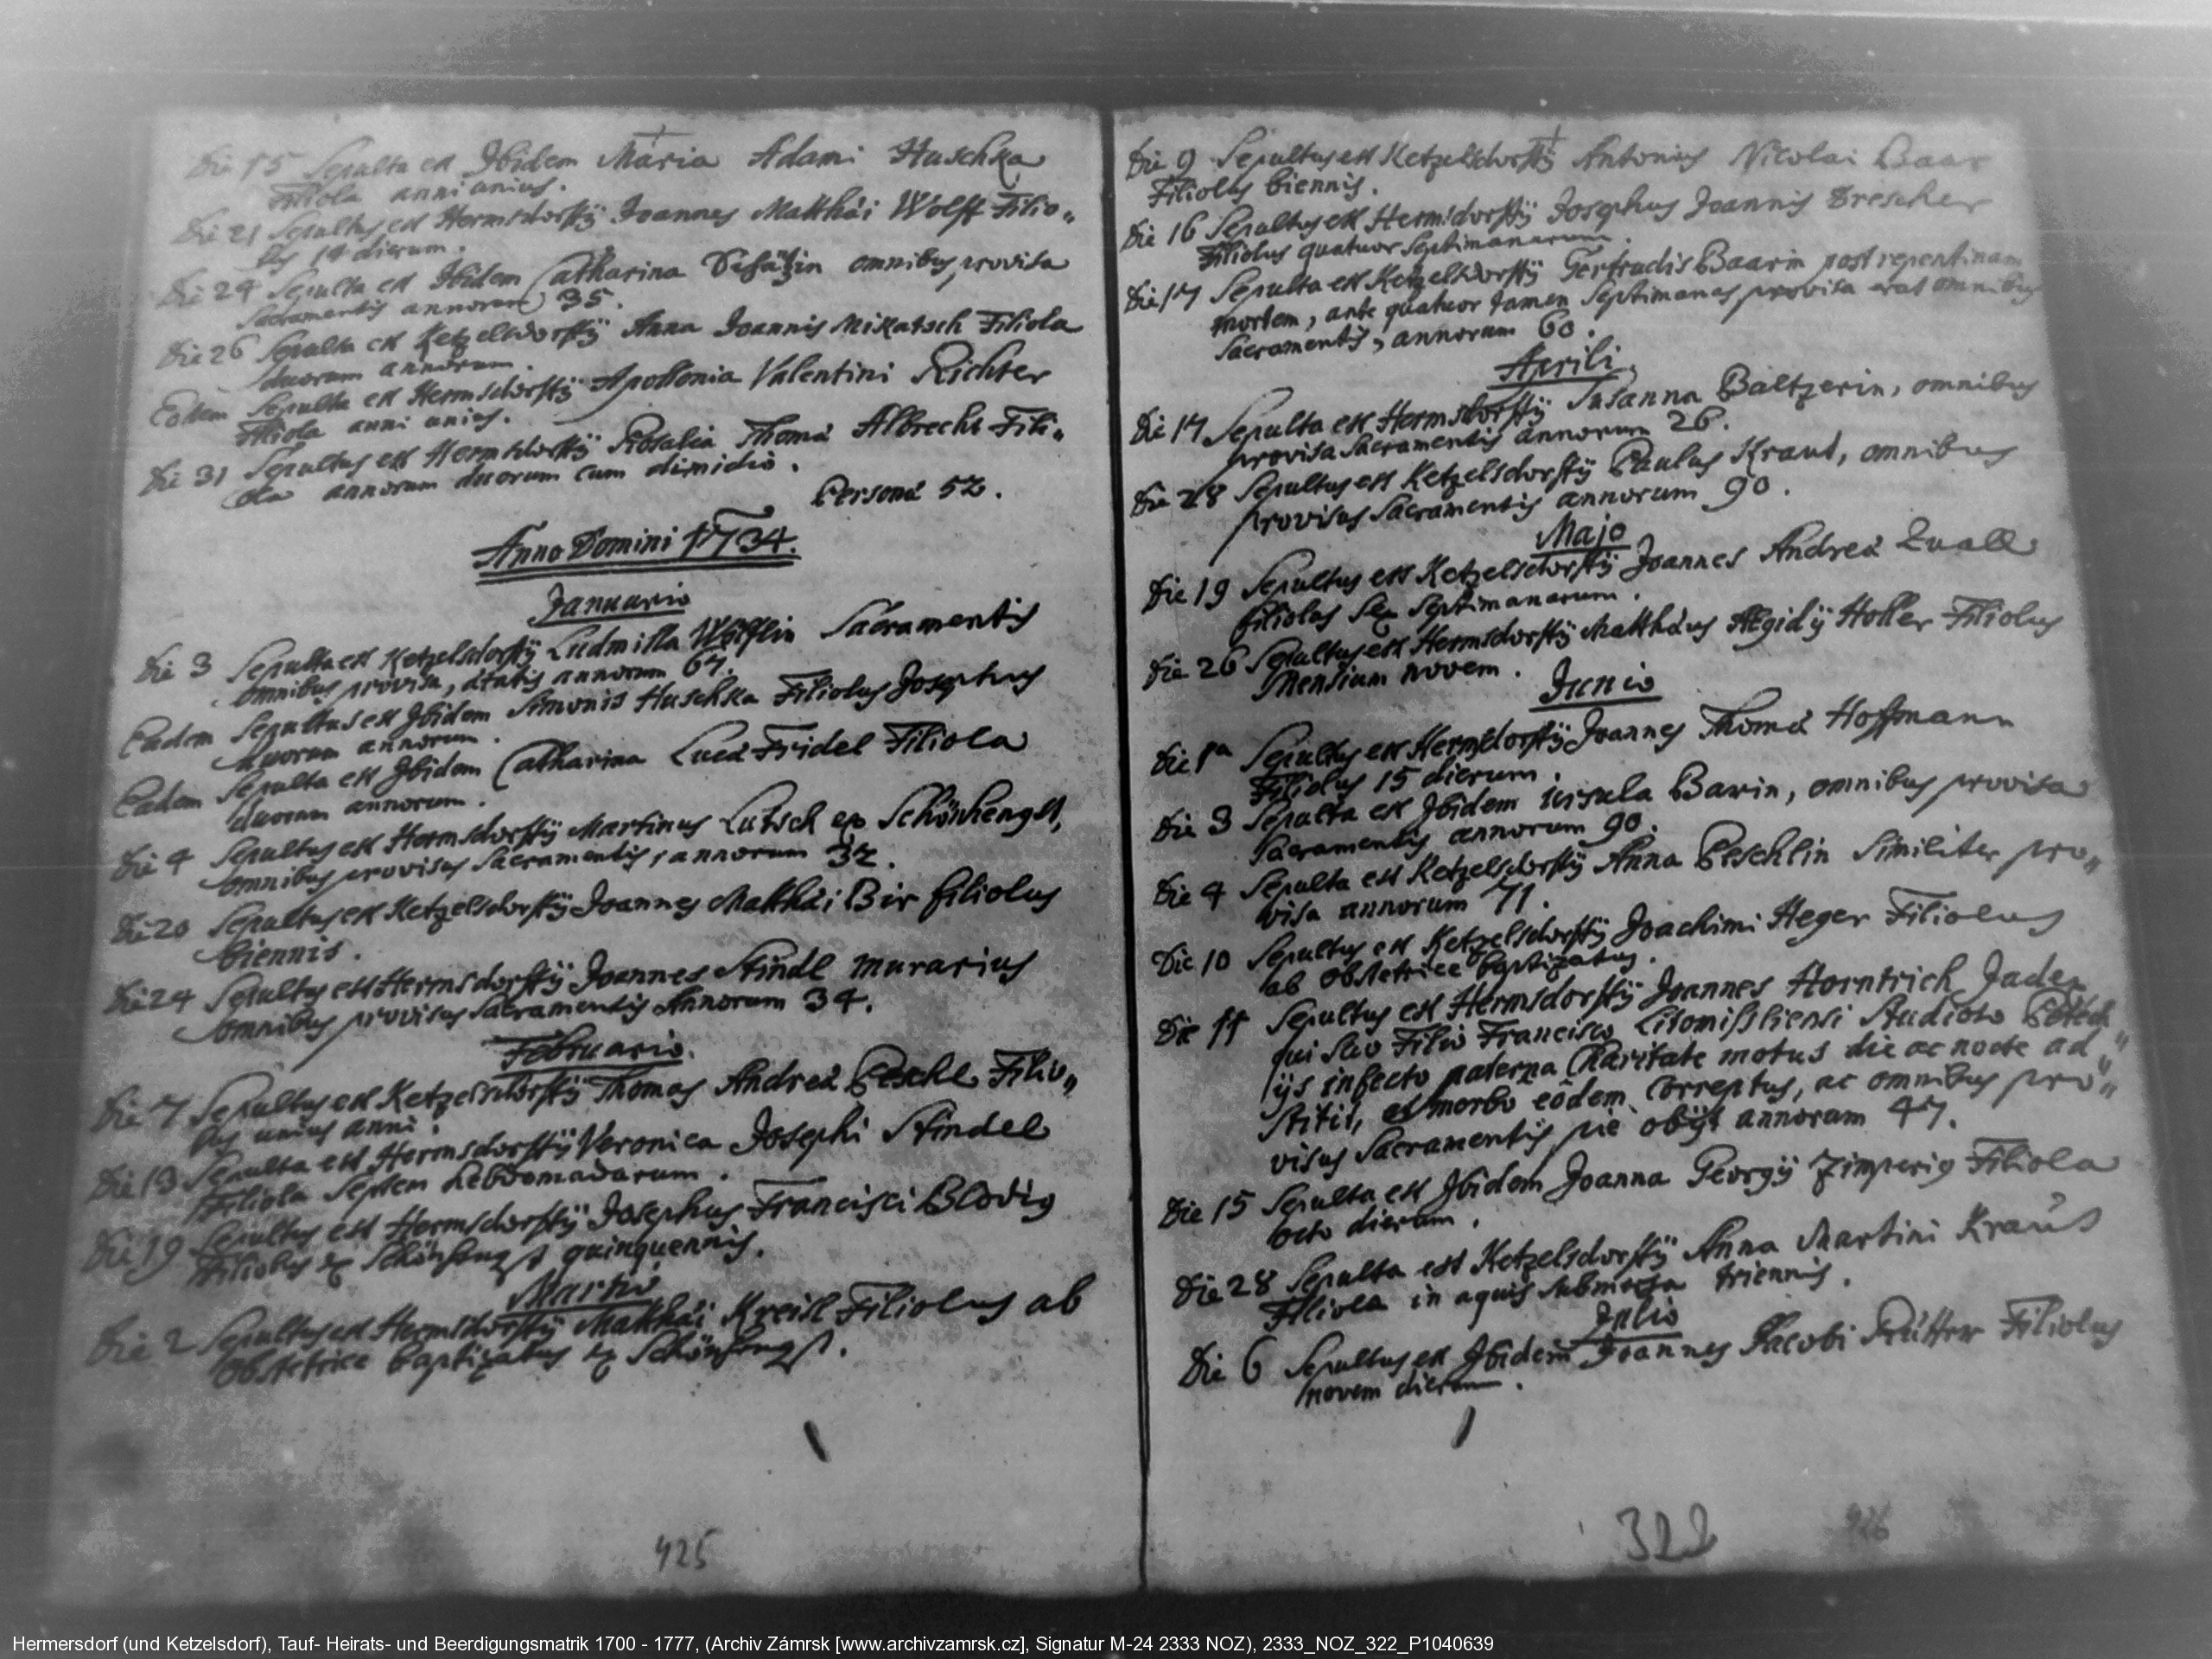 Die 15 Sepulta est Ibidem Maria Adami Huschka
Filiola anni unius.
Die 21 Sepultus est Hermsdorffÿ Joannes Matthæi Wolff Filio„
lus 14 dierum.
Die 24 Sepulta est Ibidem Catharina omnibus provisa
Sacramentis annorum 35.
Die 26 Sepulta est Ketzelsdorffÿ Anna Joannis Mikatsch Filiola
duorum annorum.
Eodem Sepulta est Hermsdorffÿ Apollonia Valentini Richter
Filiola anni unius.
Die 31 Sepultus est Hermsdorffÿ Rosalia Thomæ Albrecht Fili„
ola annorum duorum cum dimidio.
Personæ 52.
Anno Domini 1734.
Januario
Die 3 Sepulta est Ketzelsdorffÿ Ludmilla Wölflin Sacramentis
omnibus provisa, ætatis annorum 67.
Eadem Sepultus est Ibidem Simonis Huschka Filiolus Josephus
duorum annorum.
Eadem Sepulta est Ibidem Catharina Lucæ Fridel Filiola
duorum annorum.
Die 4 Sepultus est Hermsdorffÿ Martinus Lutsch ex Schönhengst,
omnibus provisus Sacramentis, annorum 32.
Die 20 Sepultus est Ketzelsdorffÿ Joannes Matthæi Bir filiolus
biennis.
Die 24 Sepultus est Hermsdorffÿ Joannes Stindl murarius
omnibus provisus Sacramentis Annorum 34.
Februario.
Die 7 Sepultus est Ketzelsdorffÿ Thomas Andreæ Peschl Filio„
lus unius anni.
Die 13 Sepulta est Hermsdorffÿ Veronica Josephi Stindel
Filiola Septem hebdomadarum.
Die 19 Sepultus est Hermsdorffÿ Josephus Francisci Blodig
Filiolus ex Schönhengst quinquennis.
Martio
Die 2 Sepultus est Hermsdorffÿ Matthæi Kreisl Filiolus ab
Obstetrice baptizatus ex Schönhengst.
425
Die 9 Sepultus est Ketzelsdorffÿ Antonius Nicolai Baar
Filiolus biennis.
Die 16 Sepultus est Hermsdorffÿ Josephus Joannis Drescher
Filiolus quatuor Septimanarum.
Die 17 Sepulta est Ketzelsdorffÿ Gertrudis Baarin post repentinam
mortem, ante quatuor tamen Septimanas provisa erat omnibus
Sacramentis, annorum 60.
Aprili.
Die 17 Sepulta est Hermsdorffÿ Susanna Baltzerin, omnibus
provisa Sacramentis annorum 26.
Die 28 Sepultus est Ketzelsdorffÿ Paulus Kraut, omnibus
provisus Sacramentis annorum 90.
Majo
Die 19 Sepultus est Ketzelsdorffÿ Joannes Andreæ
filiolus Sex Septimanarum.
Die 26 Sepultus est Hermsdorffÿ Matthæus Ægidÿ Holler Filiolus
Mensium novem.
Junio
Die 1a Sepultus est Hermsdorffÿ Joannes Thomæ Hoffmann
Filiolus 15 dierum.
Die 3 Sepulta est Ibidem Ursula Bawin, omnibus provisa
Sacramentis annorum 90.
Die 4 Sepulta est Ketzelsdorffÿ Anna Peschlin Similiter pro„
visa annorum 71.
Die 10 Sepultus est Ketzelsdorffÿ Joachimi Heger Filiolus
ab Obstetrice baptizatus.
Die 11 Sepultus est Hermsdorffÿ Joannes Horntrich Judex
qui suo Filio Francisco Litomissliensi Studioso Petech„
ijs infecto paterna Charitate motus die ac nocte ad„
stitit, et morbo eôdem correptus, ac omnibus pro„
visus Sacramentis pie obijt annorum 47.
Die 15 Sepulta est Ibidem Joanna Georgÿ Zimprig Filiola
octo dierum.
Die 28 Sepulta est Ketzelsdorffÿ Anna Martini Kraut
Filiola in aquis submersa triennis.
Julio
Die 6 Sepultus est Ibidem Joannes Jacobi Filiolus
novem dierum.
322 426
Hermersdorf (und Ketzelsdorf), Tauf- Heirats- und Beerdigungsmatrik 1700 - 1777, (Archiv Zámrsk [www.archivzamrsk.cz], Signatur M-24 2333 NOZ), 2333_NOZ_322_P1040639